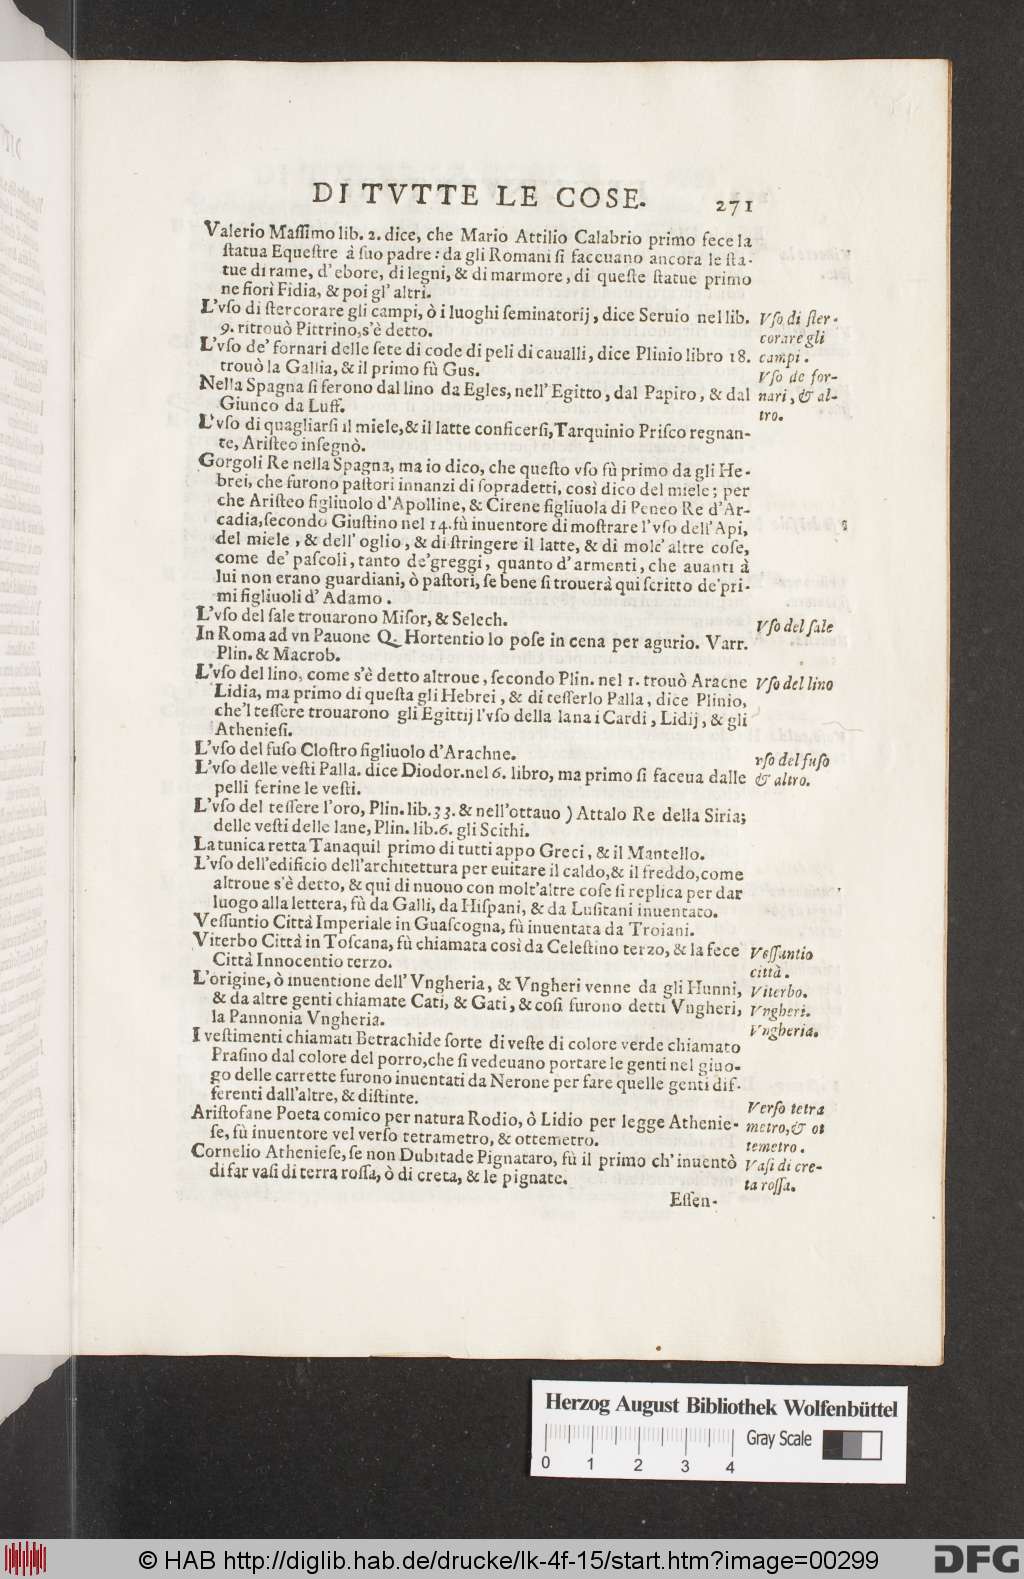 DI TVTTE LE COSE. 271
Valerio Maſſimo lib. 2. dice, che Mario Attilio Calabrio primo fece la
ſtatua Equeſtre à ſuo padre: da gli Romani ſi faceuano ancora le ſta-
tue di rame, d'ebore, di legni, & di marmore, di queſte ſtatue primo
ne fiorì Fidia, & poi gl'altri.
L'vſo di ſtercorare gli campi, ò i luoghi ſeminatorij, dice Seruio nel lib.
9. ritrouò Pittrino, s'è detto.
Vſo di ſter-
corare gli
campi.
L'vſo de' fornari delle ſete di code di peli di caualli, dice Plinio libro 18.
trouò la Gallia, & il primo fù Gus.
Nella Spagna ſi ferono dal lino da Egles, nell'Egitto, dal Papiro, & dal
Giunco da Luff.
Vſo de for-
nari, & al-
tro.
L'vſo di quagliarſi il miele, & il latte conficerſi, Tarquinio Priſco regnan-
te, Ariſteo inſegnò.
Gorgoli Re nella Spagna, ma io dico, che queſto vſo fù primo da gli He-
brei, che furono paſtori innanzi di ſopradetti, così dico del miele; per
che Ariſteo figliuolo d'Apolline, & Cirene figliuola di Peneo Re d'Ar-
cadia, ſecondo Giuſtino nel 14. fù inuentore di moſtrare l'vſo dell'Api,
del miele, & dell'oglio, & di ſtringere il latte, & di molt'altre coſe,
come de' paſcoli, tanto de'greggi, quanto d'armenti, che auanti à
lui non erano guardiani, ò paſtori, ſe bene ſi trouerà qui ſcritto de'pri-
mi figliuoli d'Adamo.
L'vſo del ſale trouarono Miſor, & Selech.
Vſo del ſale
In Roma ad vn Pauone Q. Hortentio lo poſe in cena per agurio. Varr.
Plin. & Macrob.
L'vſo del lino, come s'è detto altroue, ſecondo Plin. nel 1. trouò Aracne
Vſo del lino
Lidia, ma primo di queſta gli Hebrei, & di teſſerlo Palla, dice Plinio,
che'l teſſere trouarono gli Egittij l'vſo della lana i Cardi, Lidij, & gli
Athenieſi.
L'vſo del fuſo Cloſtro figliuolo d'Arachne.
L'vſo delle veſti Palla. dice Diodor. nel 6. libro, ma primo ſi faceua dalle
pelli ferine le veſti.
vſo del fuſo
& altro.
L'vſo del teſſere l'oro, Plin. lib. 33. & nell'ottauo ) Attalo Re della Siria;
delle veſti delle lane, Plin. lib. 6. gli Scithi.
La tunica retta Tanaquil primo di tutti appo Greci, & il Mantello.
L'vſo dell'edificio dell'architettura per euitare il caldo, & il freddo, come
altroue s'è detto, & qui di nuouo con molt'altre coſe ſi replica per dar
luogo alla lettera, fù da Galli, da Hiſpani, & da Luſitani inuentato.
Veſſuntio Città Imperiale in Guaſcogna, fù inuentata da Troiani.
Viterbo Città in Toſcana, fù chiamata così da Celeſtino terzo, & la fece
Città Innocentio terzo.
Veſſuntio
città.
L'origine, ò inuentione dell'Vngheria, & Vngheri venne da gli Hunni,
& da altre genti chiamate Cati, & Gati, & coſi furono detti Vngheri,
la Pannonia Vngheria.
Viterbo.
Vngheri.
Vngheria.
I veſtimenti chiamati Betrachide ſorte di veſte di colore verde chiamato
Praſino dal colore del porro, che ſi vedeuano portare le genti nel giuo-
go delle carrette furono inuentati da Nerone per fare quelle genti dif-
ferenti dall'altre, & diſtinte.
Ariſtofane Poeta comico per natura Rodio, ò Lidio per legge Athenie-
ſe, fù inuentore vel verſo tetrametro, & ottemetro.
Verſo tetra
metro, & ot
temetro.
Cornelio Athenieſe, ſe non Dubitade Pignataro, fù il primo ch'inuentò
di far vaſi di terra roſſa, ò di creta, & le pignate.
Vaſi di cre-
ta roſſa.
Eſſen-
Herzog August Bibliothek Wolfenbüttel
Gray Scale
0 1 2 3 4
© HAB http://diglib.hab.de/drucke/lk-4f-15/start.htm?image=00299
DFG